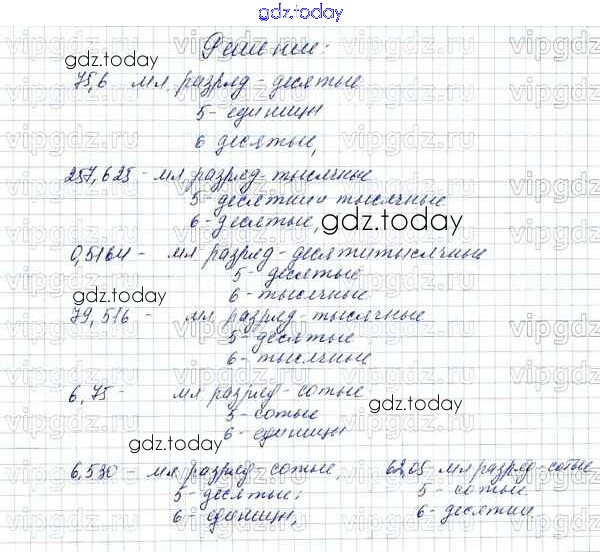 gdz.today
Решение:
gdz.today
75,6 мл. разряд - десятые
5 - единицы
6 десятые,
257,625 - мл. разряд - тысячные
5 - десятки и тысячные
6 - десятые,
gdz.today
0,5164 - мл разряд - десятитысячные
5 - десятые
6 - тысячные
gdz.today
79,516 - мл. разряд - тысячные
5 - десятые
6 - тысячные
6,75 - мл разряд - сотые
gdz.today
5 - сотые
6 - единицы
gdz.today
6,530 - мл. разряд - сотые,
5 - десятые;
6 - единиц,
62,05 - мл разряд - сотые
5 - сотые
6 - десятки